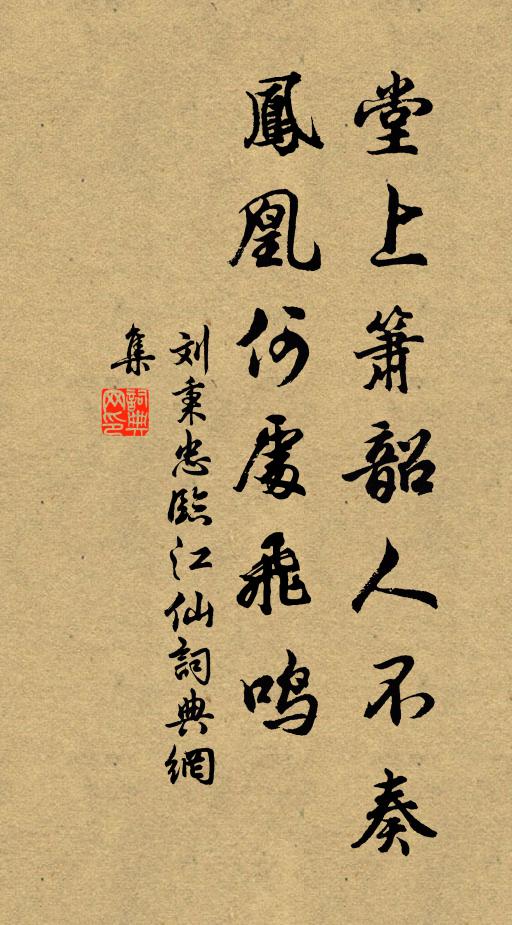 堂上箫韶人不奏
鳳凰何處飛鳴
刘秉忠臨江仙詞典網
集
詞典网印